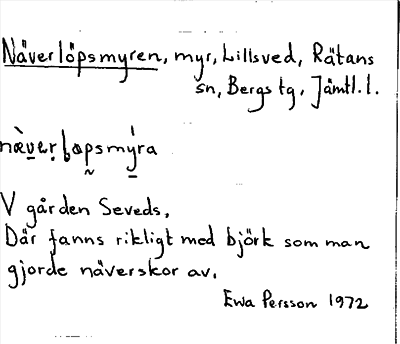 Näverlöpsmyren, myr, Lillsved, Rätans
sn, Bergs tg, Jämtl. l.
næ̀vẹṛḷapsmýra
V gården Seveds,
Där fanns rikligt med björk som man
gjorde näverskor av.
Ewa Persson 1972